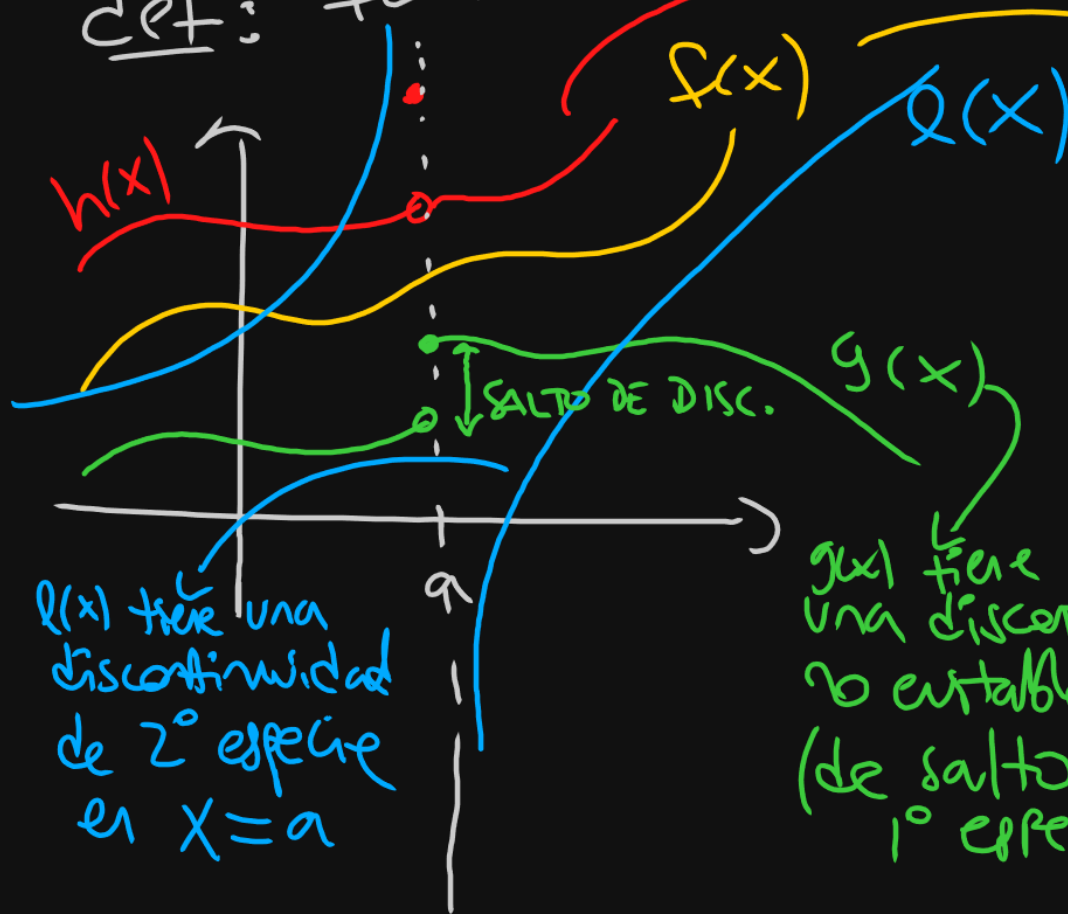 def:
h(x)
f(x)
l(x)
g(x)
SALTO DE DISC.
a
l(x) tiene una
discontinuidad
de 2° especie
en x=a
g(x) tiene
una discon
no evitabl
(de salto
1° espe